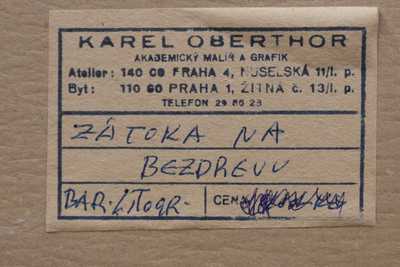 KAREL OBERTHOR
AKADEMICKÝ MALÍŘ A GRAFIK
Atelier: 140 00 PRAHA 4, NUSELSKÁ 11/I. p.
Byt: 110 00 PRAHA 1, ŽITNÁ č. 13/I. p.
TELEFON 29 86 28
ZÁTOKA NA
BEZDREVU
BAR. LITOGR.
CENA